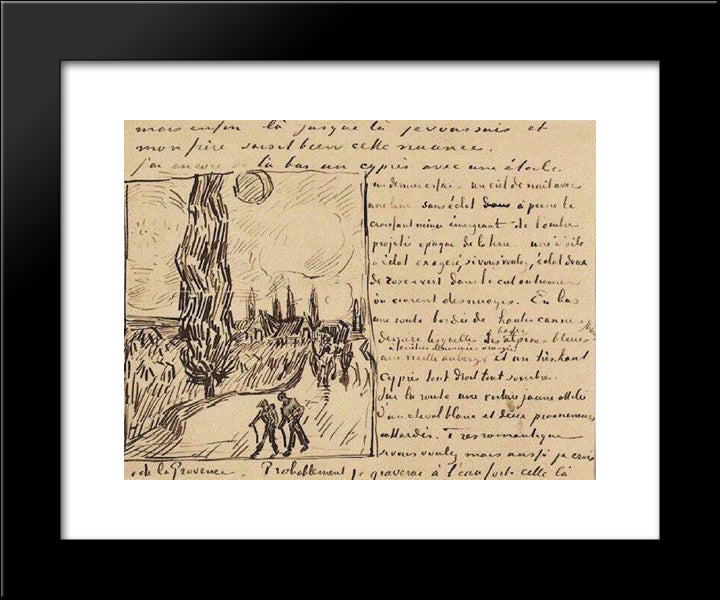 mais enfin là jusque là je vous suis et
mon frère saisit bien cette nuance.
j'ai encore de là bas un cyprès avec une étoile.
un dernier essai - un ciel de nuit avec
une lune sans éclat dans à peine le
croissant mince émergeant de l'ombre
projetée opaque de la terre - une étoile
à éclat exagéré, si vous voulez, éclat doux
de rose et vert dans le ciel outremer
où courent des nuages. En bas
une route bordée de hautes cannes
derrière lesquelles les basses alpines bleues
à fenêtres illuminées orangées
une vieille auberge et un très haut
cyprès tout droit tout sombre.
Sur la route une voiture jaune attelée
d'un cheval blanc et deux promeneurs
attardés. Très romantique
si vous voulez mais aussi je crois
de la Provence. Probablement je graverai à l'eau forte celle là